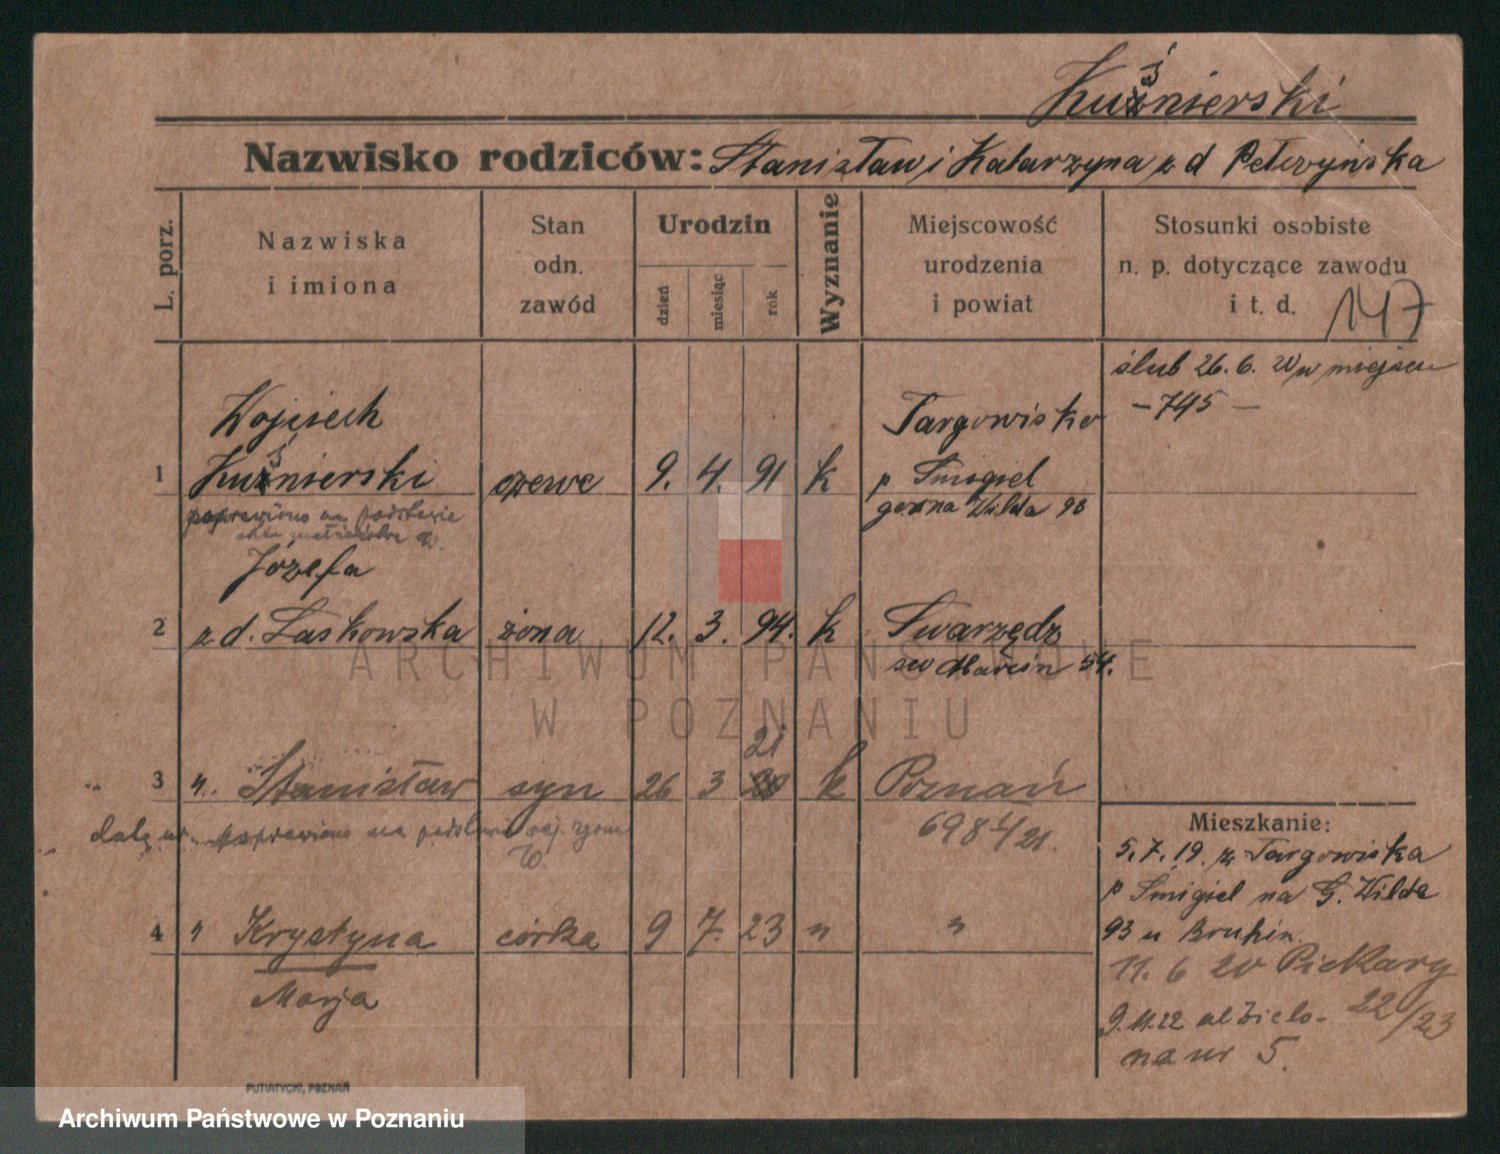 Kuśnierski
Nazwisko rodziców: Stanisław i Katarzyna z d Petczyńska
L. porz.
Nazwiska
i imiona
Stan
odn.
zawód
Urodzin
dzień
miesiąc
rok
Wyznanie
Miejscowość
urodzenia
i powiat
Stosunki osobiste
n. p. dotyczące zawodu
i t. d.
147
ślub 26. 6. 20 w miejscu
– 745 –
Wojciech
Targowisko
1 Kuśnierski szewc 9. 4. 91 k p Śmigiel
poprawiono na podstawie
górna Wilda 93
Józefa
2 z d. Laskowska żona 12. 3. 94. k Swarzędz
św Marcin 54.
21
3 " Stanisław syn 26 3 k Poznań
poprawiono na podstawie
698 I/21.
4 " Krystyna córka 9 7. 23 " "
Marja
Mieszkanie:
5. 7. 19. z Targowiska
p Śmigiel na G. Wilda
93 u
11. 6 20 Piekary
22/23
9. 11. 22 ul Zielo-
na nr 5.
PUTIATYCKI, POZNAŃ
ARCHIWUM PAŃSTWOWE
W POZNANIU
Archiwum Państwowe w Poznaniu